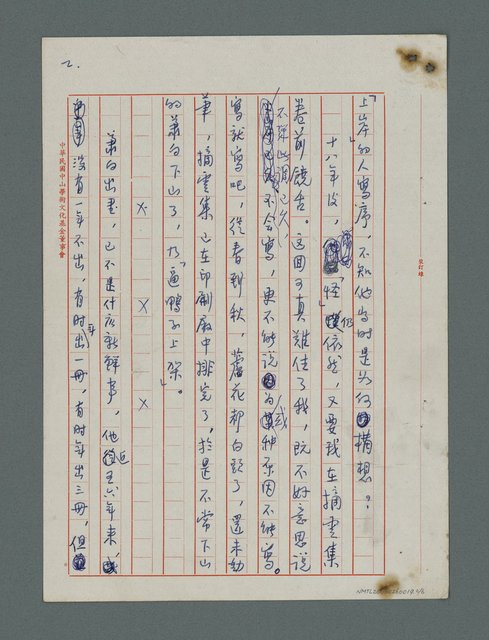 2.
上岸的人寫序，不知他當時是為何構想？
十八年後，「怪但依然，又要找在摘雲集
卷前饒舌。這回可真難住了我，既不好意思說
不彈此調已久
不會寫，更不能說為或種原因不能寫。
寫就寫吧，從春到秋，蘆花都白頭了，還未動
筆，摘雲集已在印刷廠中排完了，於是不常下山
的蕭白下山了，乃「逼鴨子上架」。
X X X
蕭白出書，已不是什麼新鮮事，他近五六年來，
沒有一年不出，有時年出一冊，有時年出三冊，但
中華民國中山學術文化基金董事會